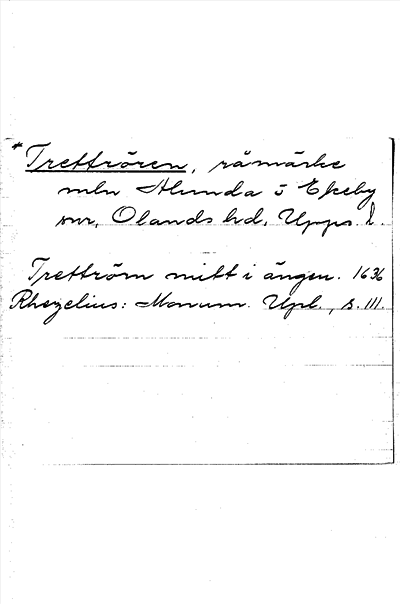 *Trettrören, råmärke
mln Alunda o Ekeby
snr, Olands hd, Upps. l.
Trettröm mitt i ängen. 1636
Rhezelius: Monum. Upl., s. 111.